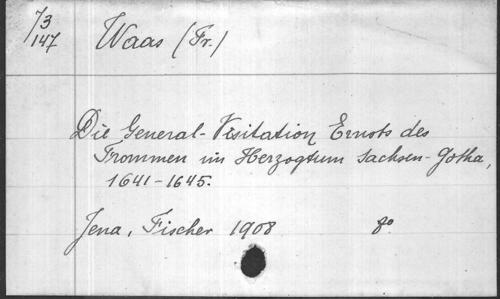 73/147
Waas (Fr.)
Die General-Visitation Ernsts des
Frommen im Herzogtum Sachsen-Gotha,
1641-1645.
Jena, Fischer 1908 8°